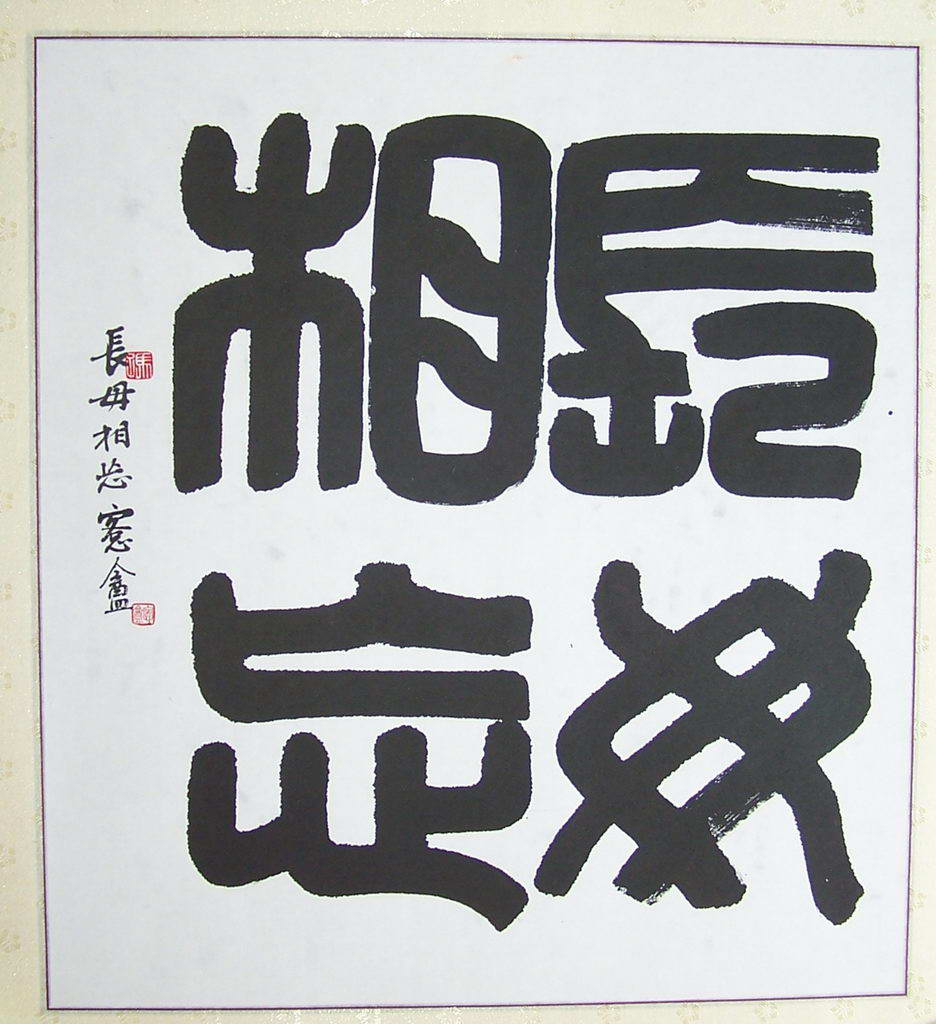 長毋
相忘
長毋相忘窓盦
馮